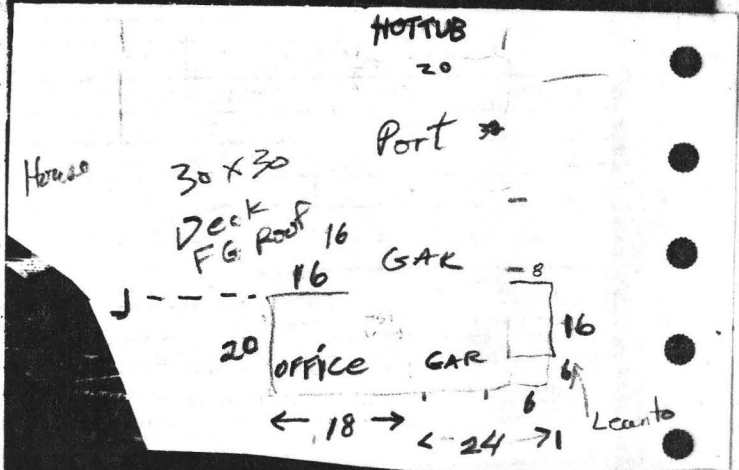 HOTTUB
20
Port
House
30 x 30
Deck
FG Roof 16
16
GAR
8
20
OFFICE
GAR
16
6
6
Leanto
18
24